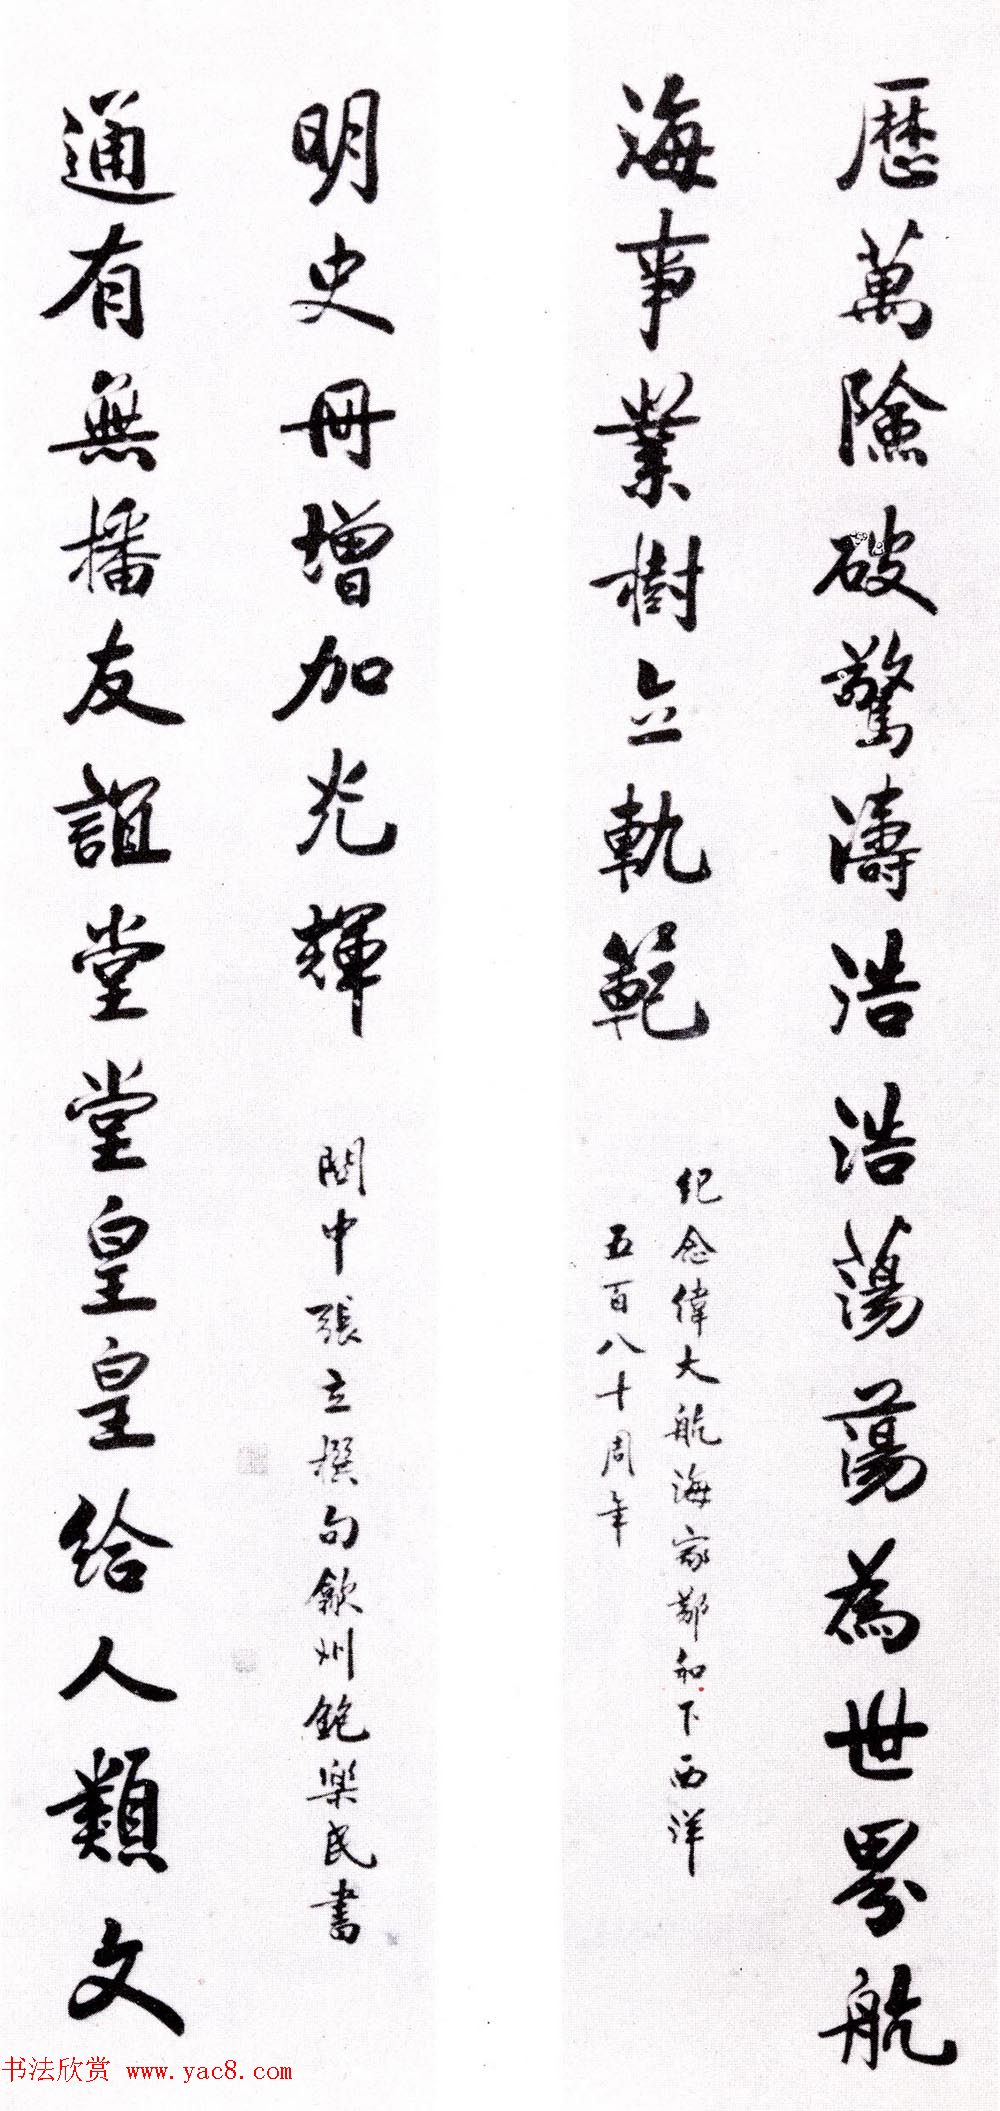 歷萬險破驚濤浩浩蕩蕩為世界航
海事業樹立軌範
紀念偉大航海家鄭和下西洋
五百八十周年
通有無播友誼堂堂皇皇給人類文
明史冊增加光輝
閩中張立撰句歙州鮑樂民書
书法欣赏 www.yac8.com